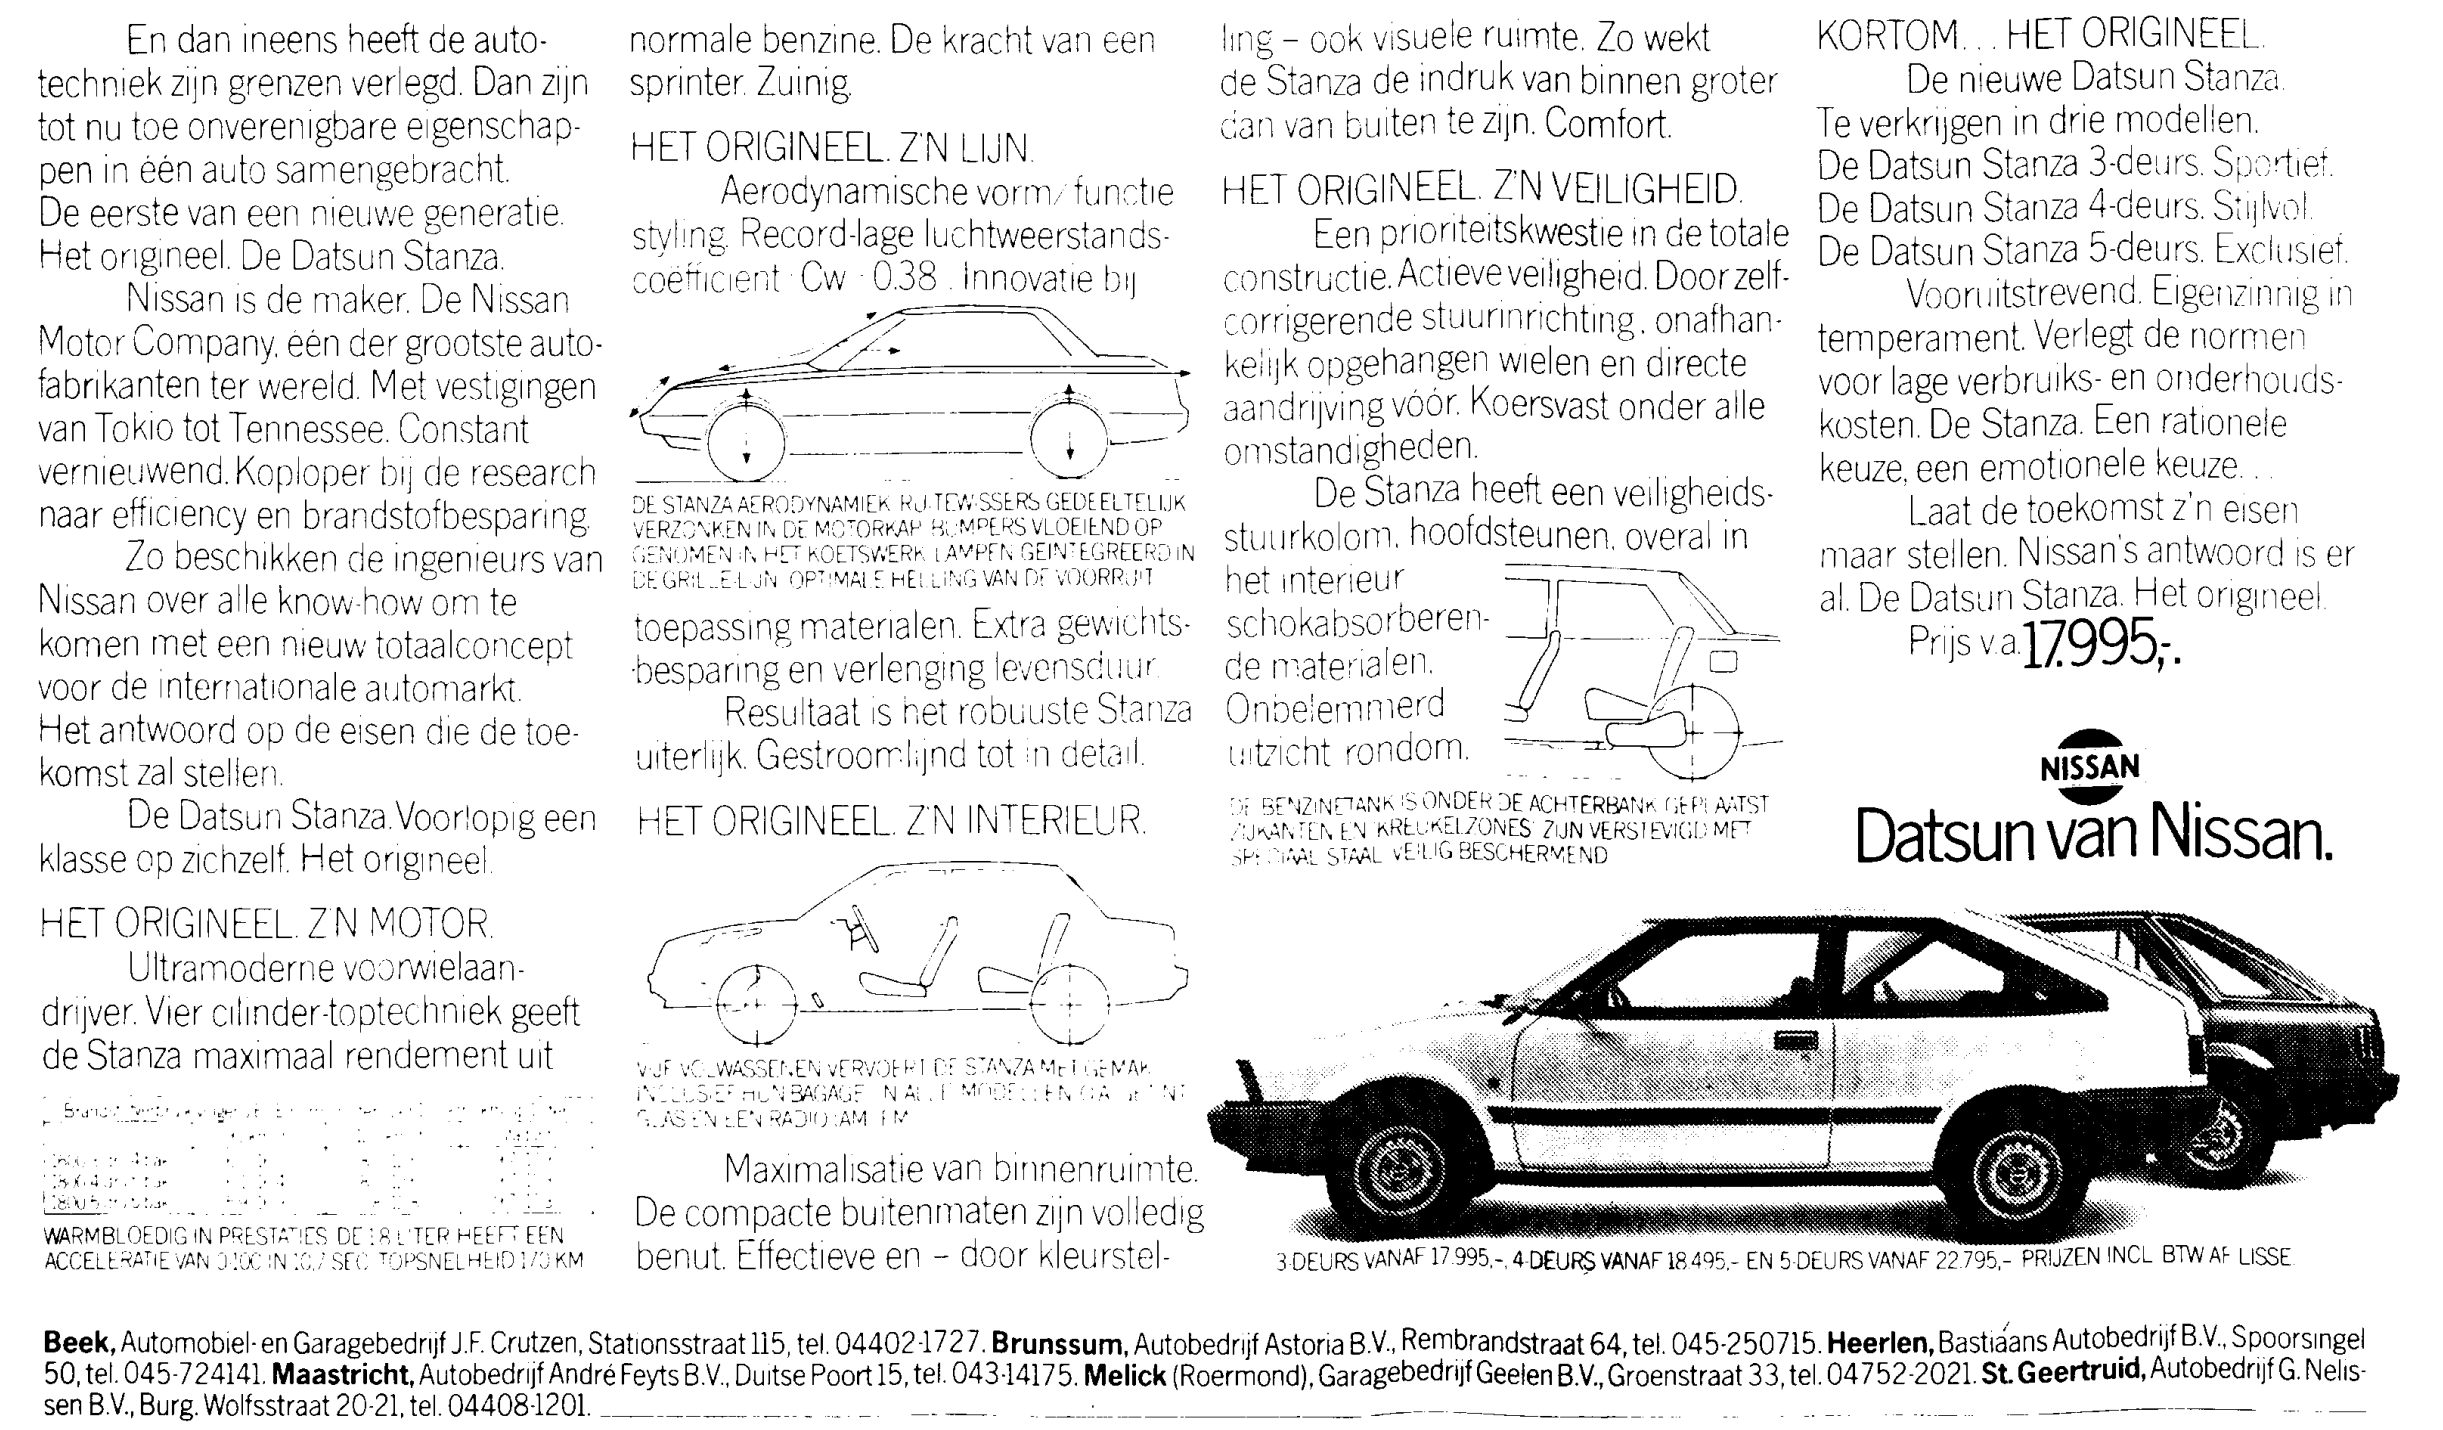 En dan ineens heeft de auto-
techniek zijn grenzen verlegd. Dan zijn
tot nu toe onverenigbare eigenschap-
pen in één auto samengebracht.
De eerste van een nieuwe generatie.
Het origineel. De Datsun Stanza.
Nissan is de maker. De Nissan
Motor Company, één der grootste auto-
fabrikanten ter wereld. Met vestigingen
van Tokio tot Tennessee. Constant
vernieuwend. Koploper bij de research
naar efficiency en brandstofbesparing.
Zo beschikken de ingenieurs van
Nissan over alle know-how om te
komen met een nieuw totaalconcept
voor de internationale automarkt.
Het antwoord op de eisen die de toe-
komst zal stellen.
De Datsun Stanza. Voorlopig een
klasse op zichzelf. Het origineel.
HET ORIGINEEL. Z'N MOTOR.
Ultramoderne voorwielaan-
drijver. Vier cilinder-toptechniek geeft
de Stanza maximaal rendement uit
WARMBLOEDIG IN PRESTATIES DE 1.8 LITER HEEFT EEN
ACCELERATIE VAN 0-100 IN 10,7 SEC TOPSNELHEID 170 KM
normale benzine. De kracht van een
sprinter. Zuinig.
HET ORIGINEEL. Z'N LIJN.
Aerodynamische vorm/functie
styling. Record-lage luchtweerstands-
coëfficient Cw 0.38. Innovatie bij
DE STANZA AERODYNAMIEK RUITEWISSERS GEDEELTELIJK
VERZONKEN IN DE MOTORKAP BUMPERS VLOEIEND OP
GENOMEN IN HET KOETSWERK LAMPEN GEINTEGREERD IN
DE GRILLE-LIJN OPTIMALE HELLING VAN DE VOORRUIT
toepassing materialen. Extra gewichts-
besparing en verlenging levensduur.
Resultaat is het robuuste Stanza
uiterlijk. Gestroomlijnd tot in detail.
HET ORIGINEEL. Z'N INTERIEUR.
VIJF VOLWASSENEN VERVOERT DE STANZA MET GEMAK
INCLUSIEF HUN BAGAGE IN ALLE MODELLEN
GLAS EN EEN RADIO AM FM
Maximalisatie van binnenruimte.
De compacte buitenmaten zijn volledig
benut. Effectieve en – door kleurstel-
ling – ook visuele ruimte. Zo wekt
de Stanza de indruk van binnen groter
dan van buiten te zijn. Comfort.
HET ORIGINEEL. Z'N VEILIGHEID.
Een prioriteitskwestie in de totale
constructie. Actieve veiligheid. Door zelf-
corrigerende stuurinrichting, onafhan-
kelijk opgehangen wielen en directe
aandrijving vóór. Koersvast onder alle
omstandigheden.
De Stanza heeft een veiligheids-
stuurkolom, hoofdsteunen, overal in
het interieur
schokabsorberen-
de materialen.
Onbelemmerd
uitzicht rondom.
DE BENZINETANK IS ONDER DE ACHTERBANK GEPLAATST
ZIJKANTEN EN 'KREUKELZONES' ZIJN VERSTEVIGD MET
SPECIAAL STAAL VEILIG BESCHERMEND
KORTOM... HET ORIGINEEL.
De nieuwe Datsun Stanza.
Te verkrijgen in drie modellen.
De Datsun Stanza 3-deurs. Sportief.
De Datsun Stanza 4-deurs. Stijlvol.
De Datsun Stanza 5-deurs. Exclusief.
Vooruitstrevend. Eigenzinnig in
temperament. Verlegt de normen
voor lage verbruiks- en onderhouds-
kosten. De Stanza. Een rationele
keuze, een emotionele keuze...
Laat de toekomst z'n eisen
maar stellen. Nissan's antwoord is er
al. De Datsun Stanza. Het origineel.
Prijs v.a. 17.995,-.
NISSAN
Datsun van Nissan.
3-DEURS VANAF 17.995,-, 4-DEURS VANAF 18.495,- EN 5-DEURS VANAF 22.795,- PRIJZEN INCL BTW AF LISSE
Beek, Automobiel- en Garagebedrijf J.F. Crutzen, Stationsstraat 115, tel. 04402-1727. Brunssum, Autobedrijf Astoria B.V., Rembrandstraat 64, tel. 045-250715. Heerlen, Bastiáans Autobedrijf B.V., Spoorsingel
50, tel. 045-724141. Maastricht, Autobedrijf André Feyts B.V., Duitse Poort 15, tel. 043-14175. Melick (Roermond), Garagebedrijf Geelen B.V., Groenstraat 33, tel. 04752-2021. St. Geertruid, Autobedrijf G. Nelis-
sen B.V., Burg. Wolfsstraat 20-21, tel. 04408-1201.